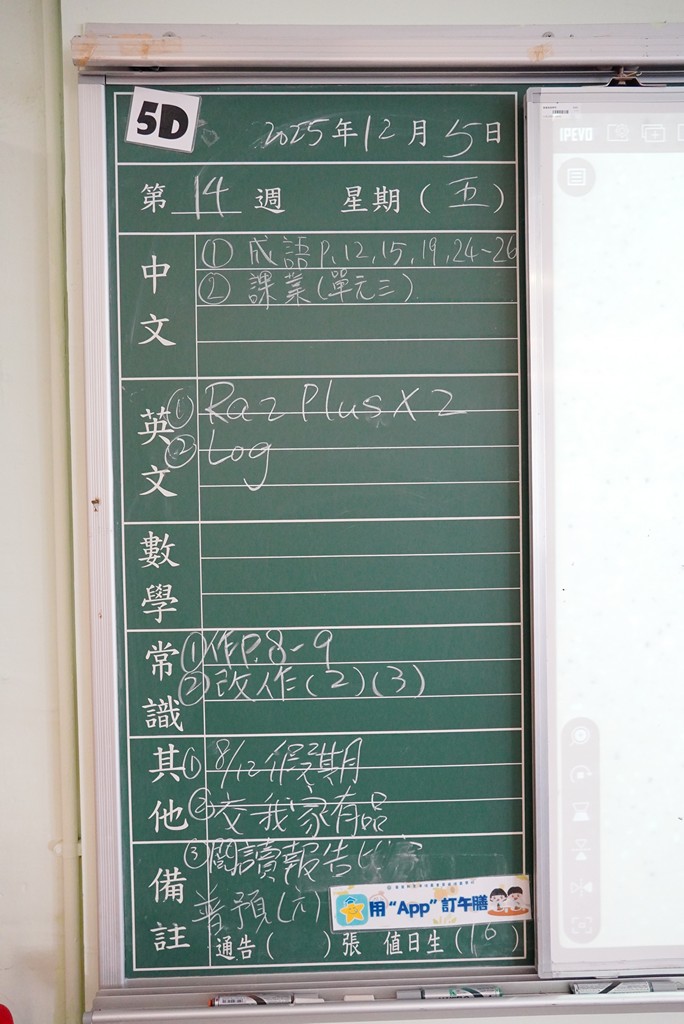 5D
2025年12月5日
IPEVO
第 14 週 星期(五)
中文
① 成語 P.12,15,19,24-26
② 課業(單元三)
英文
① Raz Plus X 2
② Log
數學
常識
① 作P.8-9
② 改作(2)(3)
其他
① 8/12 假期
② 交我家有品
③ 閱讀報告
備註
普預(六)
用“App”訂午膳
通告( )張 值日生(16)